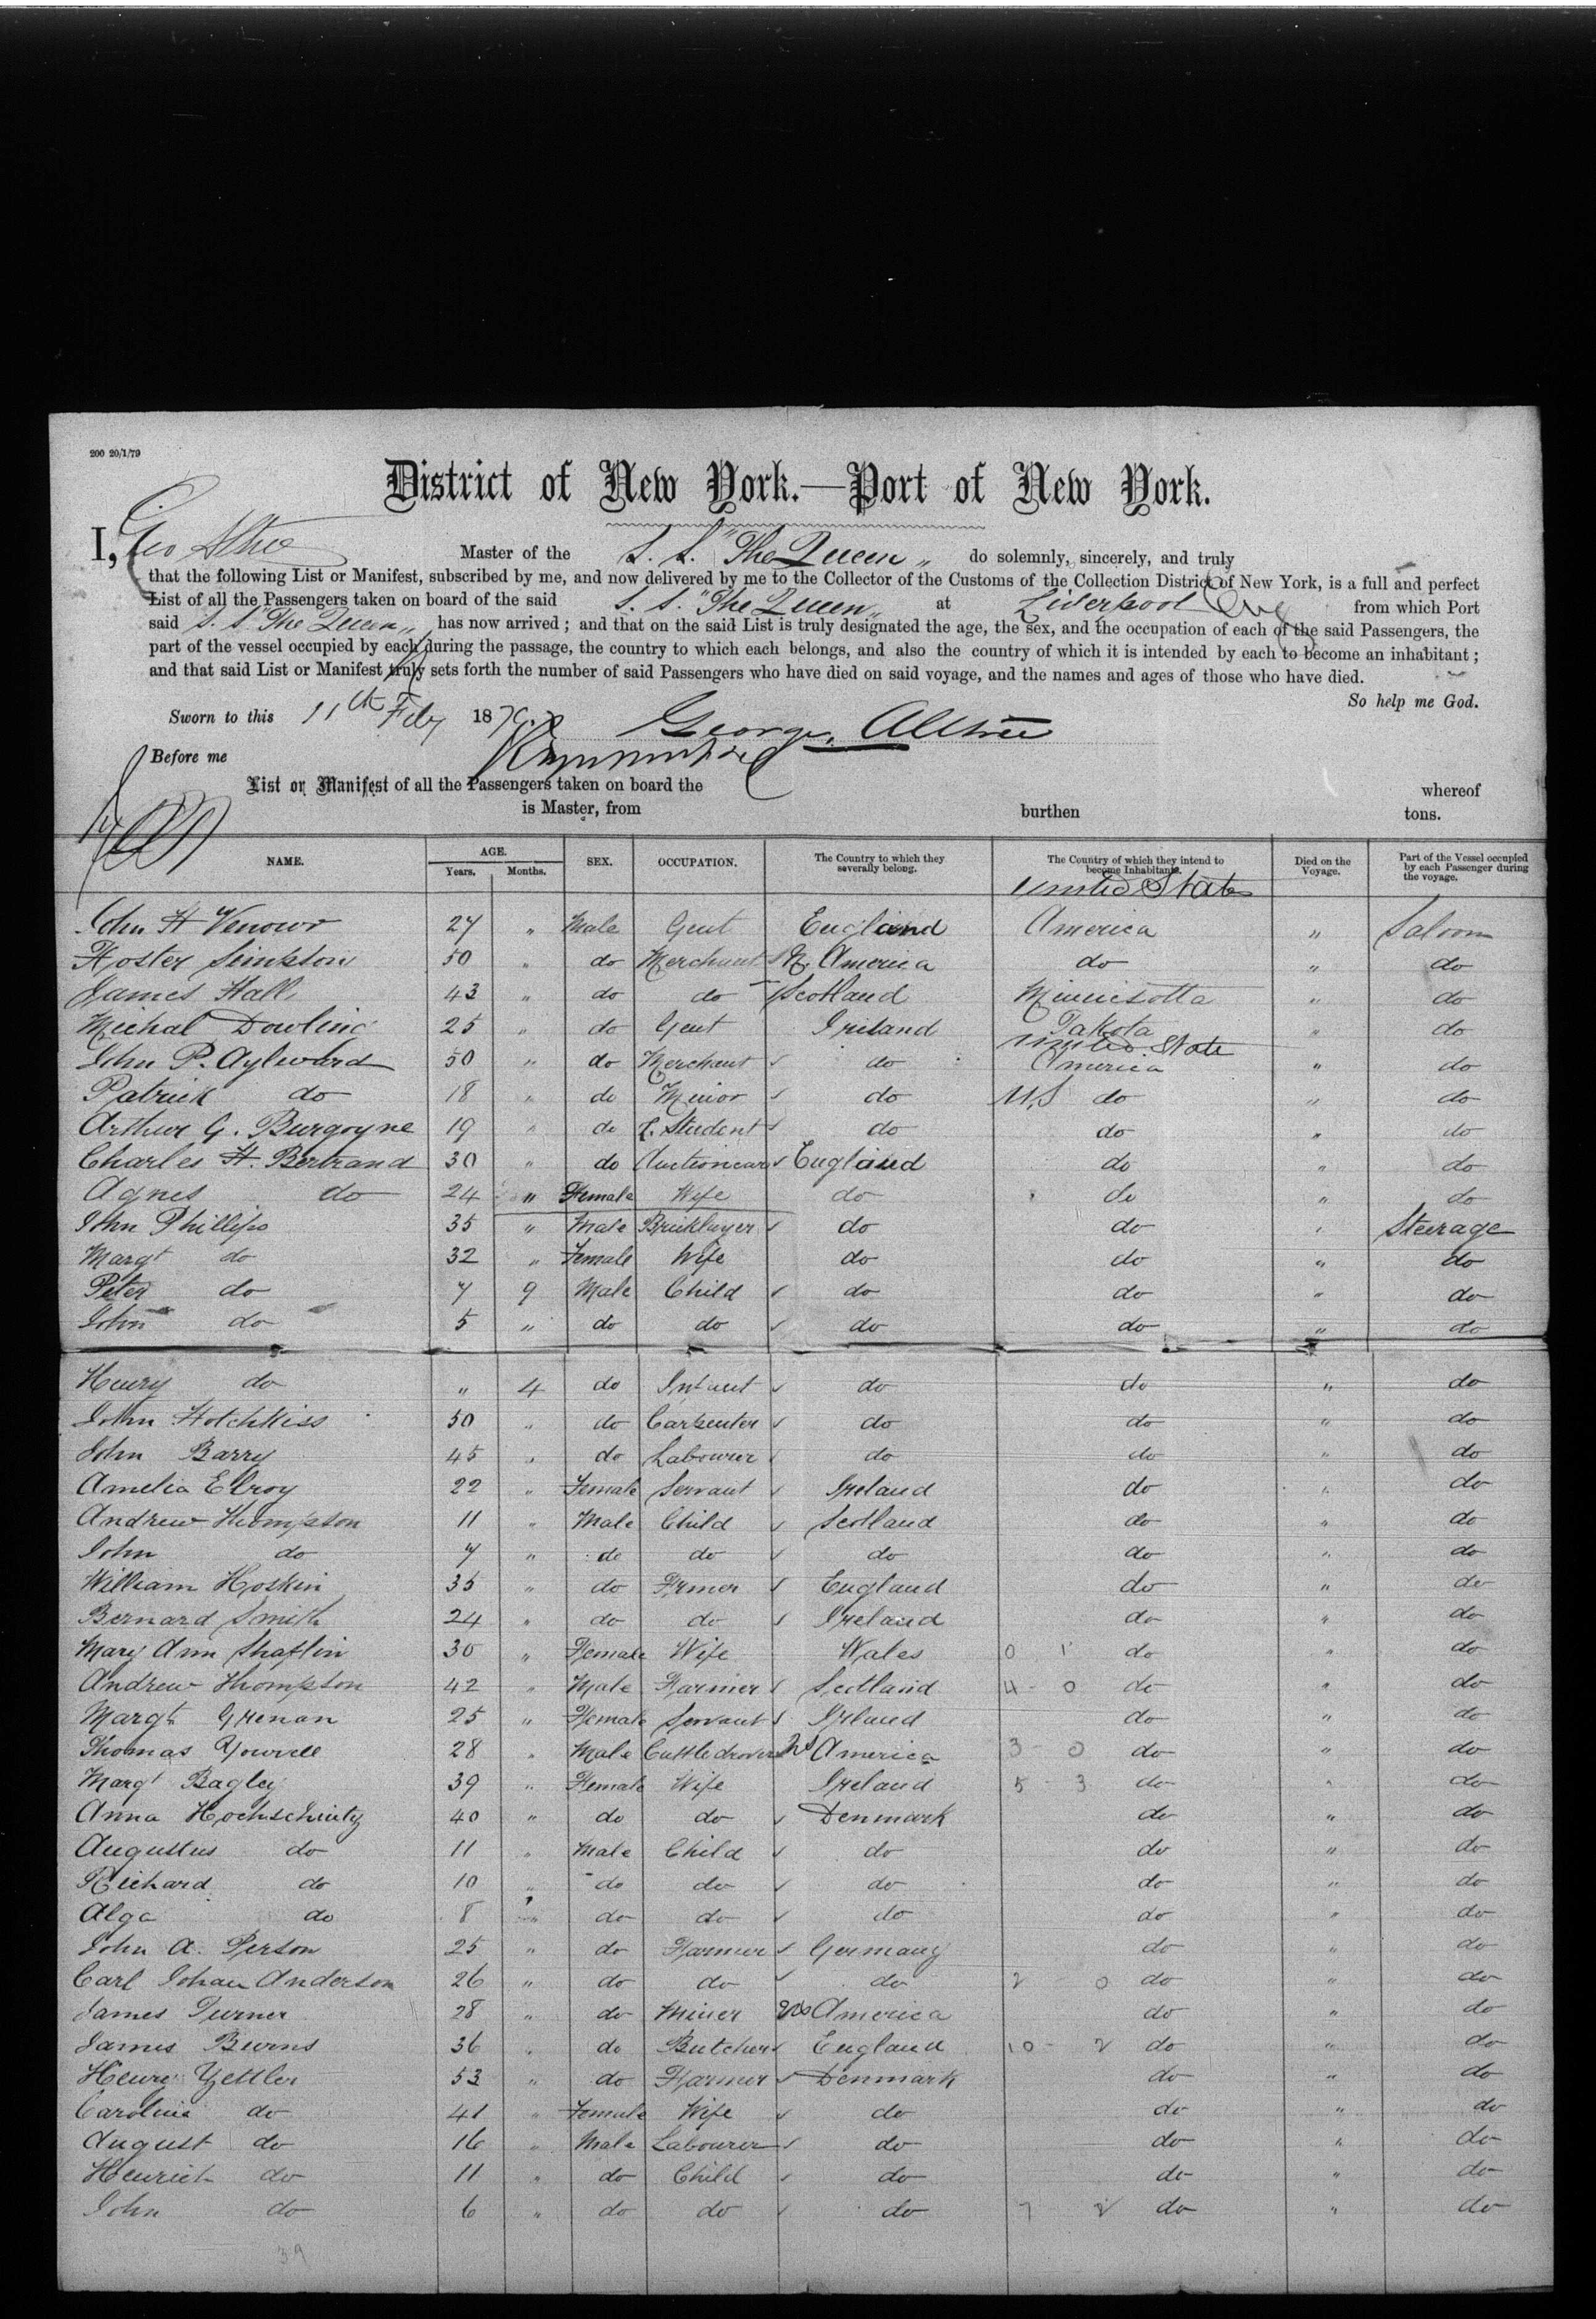 200 20/1/79
District of New York.—Port of New York.
I, Geo Altree Master of the S. S. "The Queen" do solemnly, sincerely, and truly
that the following List or Manifest, subscribed by me, and now delivered by me to the Collector of the Customs of the Collection District of New York, is a full and perfect
List of all the Passengers taken on board of the said S. S. "The Queen" at Liverpool Eng from which Port
said S. S. "The Queen" has now arrived; and that on the said List is truly designated the age, the sex, and the occupation of each of the said Passengers, the
part of the vessel occupied by each during the passage, the country to which each belongs, and also the country of which it is intended by each to become an inhabitant;
and that said List or Manifest truly sets forth the number of said Passengers who have died on said voyage, and the names and ages of those who have died.
So help me God.
Sworn to this 11th Feby 1879 George Alltree
Before me
List or Manifest of all the Passengers taken on board the whereof
is Master, from burthen tons.
NAME. AGE. Years. Months. SEX. OCCUPATION. The Country to which they severally belong. The Country of which they intend to become Inhabitants. Died on the Voyage. Part of the Vessel occupied by each Passenger during the voyage.
United States
John H Venowr 27 " Male Gent England America " Saloon
Foster Simpson 50 " do Merchant N. America do " do
James Hall 43 " do do Scotland Minnesotta " do
Michal Dowling 25 " do Gent Ireland Dakota " do
United State
John P. Aylward 50 " do Merchant do America " do
Patrick do 18 " do Minor do U.S do " do
Arthur G. Burgoyne 19 " do Student do do " do
Charles H. Bertrand 30 " do Auctionear England do " do
Agnes do 24 " Female Wife do do " do
John Phillips 35 " Male Bricklayer do do " Steerage
Margt do 32 " Female Wife do do " do
Peter do 7 9 Male Child do do " do
John do 5 " do do do do " do
Henry do " 4 do Infant do do " do
John Hotchkiss 50 " do Carpenter do do " do
John Barry 45 " do Labourer do do " do
Amelia Elroy 22 " Female Servant Ireland do " do
Andrew Thompson 11 " Male Child Scotland do " do
John do 7 " do do do do " do
William Hoskin 35 " do Frmer England do " do
Bernard Smith 24 " do do Ireland do " do
Mary Ann Shaflin 30 " Female Wife Wales 0 1 do " do
Andrew Thompson 42 " Male Farmer Scotland 4 - 0 do " do
Margt Grenan 25 " Female Servant Irland do " do
Thomas Yowell 28 " Male Cattledrover US America 3 - 0 do " do
Margt Bagley 39 " Female Wife Ireland 5 - 3 do " do
Anna Hochschuitz 40 " do do Denmark do " do
Augustus do 11 " Male Child do do " do
Richard do 10 " do do do do " do
Alga do 8 " do do do do " do
John A. Person 25 " do Farmer Germany do " do
Carl Johan Anderson 26 " do do do 2 0 do " do
James Turner 28 " do Miner US America do " do
James Burns 36 " do Butcher England 10 - 2 do " do
Henry Zettler 53 " do Farmer Denmark do " do
Caroline do 41 " Female Wife do do " do
August do 16 " Male Labourer do do " do
Henrich do 11 " do Child do do " do
John do 6 " do do do 7 2 do " do
39